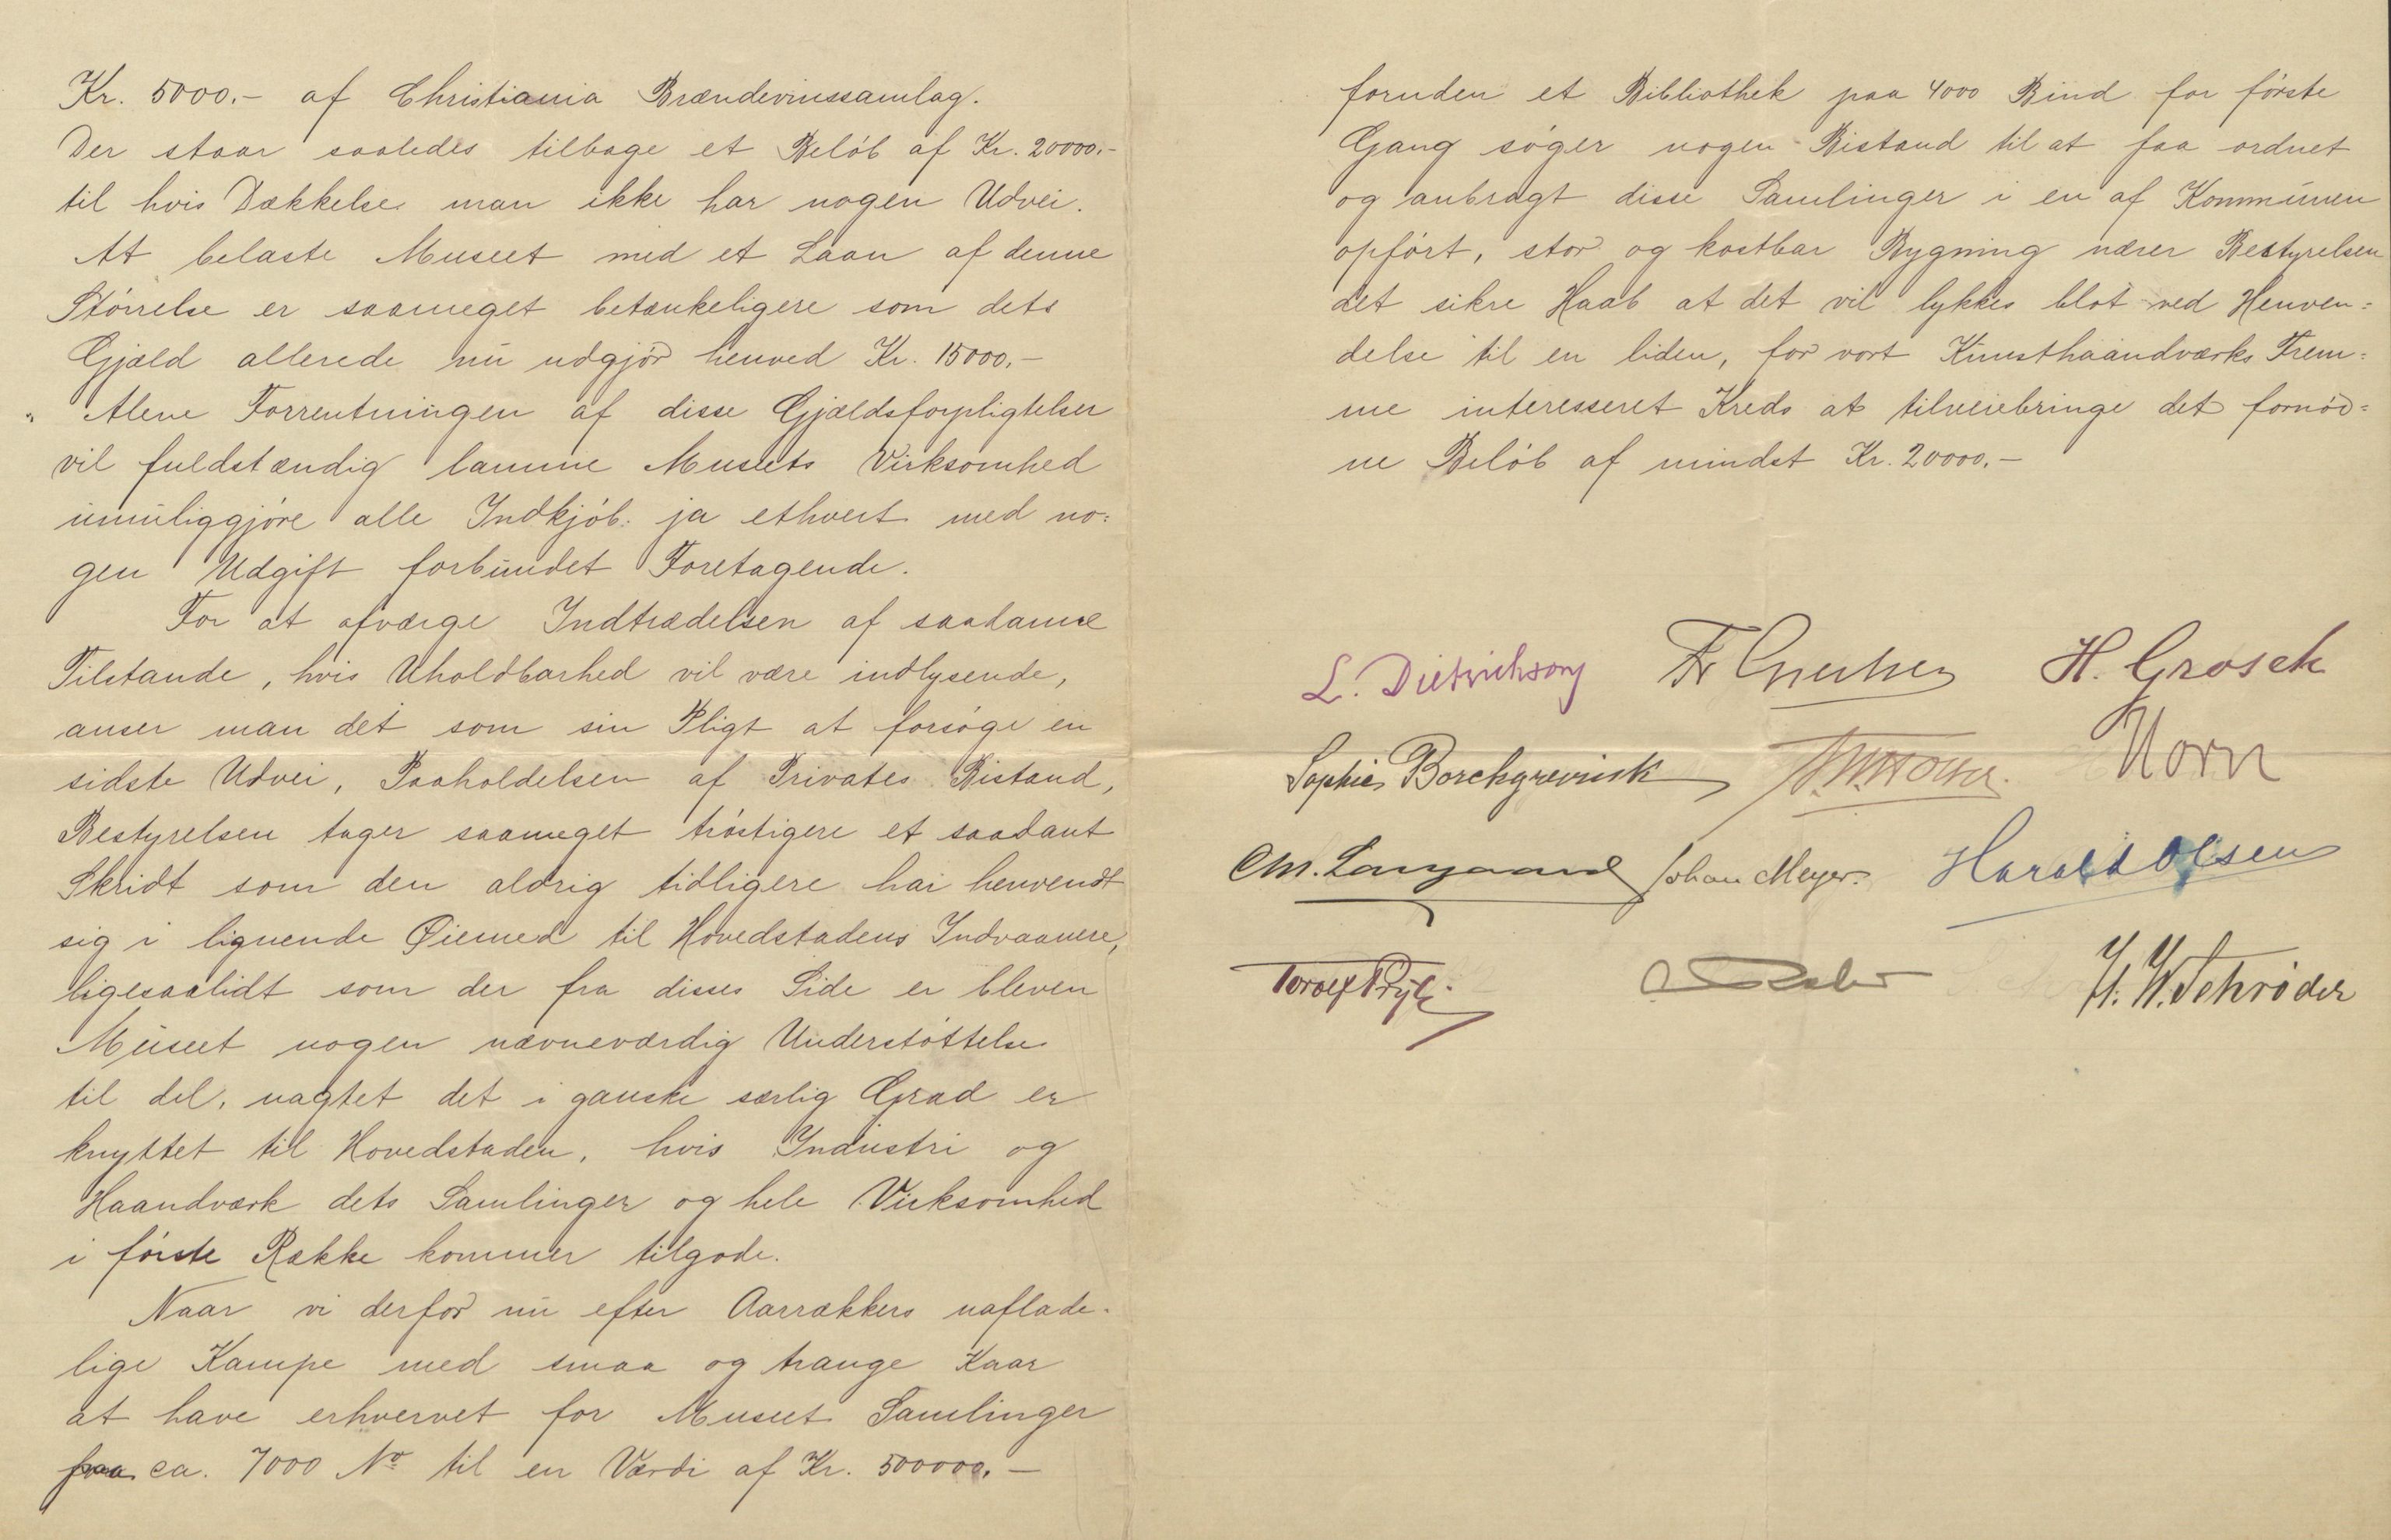 Kr. 5000.- af Christiania Brændevinssamlag.
Der staar saaledes tilbage et Beløb af Kr. 20000.-
til hvis Dækkelse man ikke har nogen Udvei.
At belaste Museet med et Laan af denne
Størrelse er saameget betænkeligere som dets
Gjæld allerede nu udgjør henved Kr. 15000.-
Alene Forrentningen af disse Gjældsforpligtelser
vil fuldstændig lamme Museets Virksomhed
umuliggjøre alle Indkjøb, ja ethvert med no=
gen Udgift forbundet Foretagende.
For at afværge Indtrædelsen af saadanne
Tilstande, hvis Uholdbarhed vil være indlysende,
anser man det som sin Pligt at forsøge en
sidste Udvei, Paaholdelsen af Privates Bistand,
Bestyrelsen tager saameget trøstigere et saadant
Skridt som den aldrig tidligere har henvendt
sig i lignende Øiemed til Hovedstadens Indvaanere,
ligesaalidt som der fra disses Side er bleven
Museet nogen nævneværdig Understøttelse
til del, uagtet det i ganske særlig Grad er
knyttet til Hovedstaden, hvis Industri og
Haandværk dets Samlinger og hele Virksomhed
i første Række kommer tilgode.
Naar vi derfor nu efter Aarrækkers uaflade=
lige Kampe med smaa og trange Kaar
at have erhvervet for Museet Samlinger
paa ca. 7000 No til en Værdi af Kr. 500000.-
foruden et Bibliothek paa 4000 Bind for første
Gang søger nogen Bistand til at faa ordnet
og anbragt disse Samlinger i en af Kommunen
opført, stor og kostbar Bygning nærer Bestyrelsen
det sikre Haab at det vil lykkes blot ved Henven=
delse til en liden, for vort Kunsthaandværks Frem=
me interesseret Kreds at tilveiebringe det fornød=
ne Beløb af mindst Kr. 20000.-
L. Dietrichson Fr H. Grosch
Sophie Borchgrevink Horn
Chr. Langaard Johan Meyer. Harald Olsen
Torolf Prytz
H. W. Schrøder